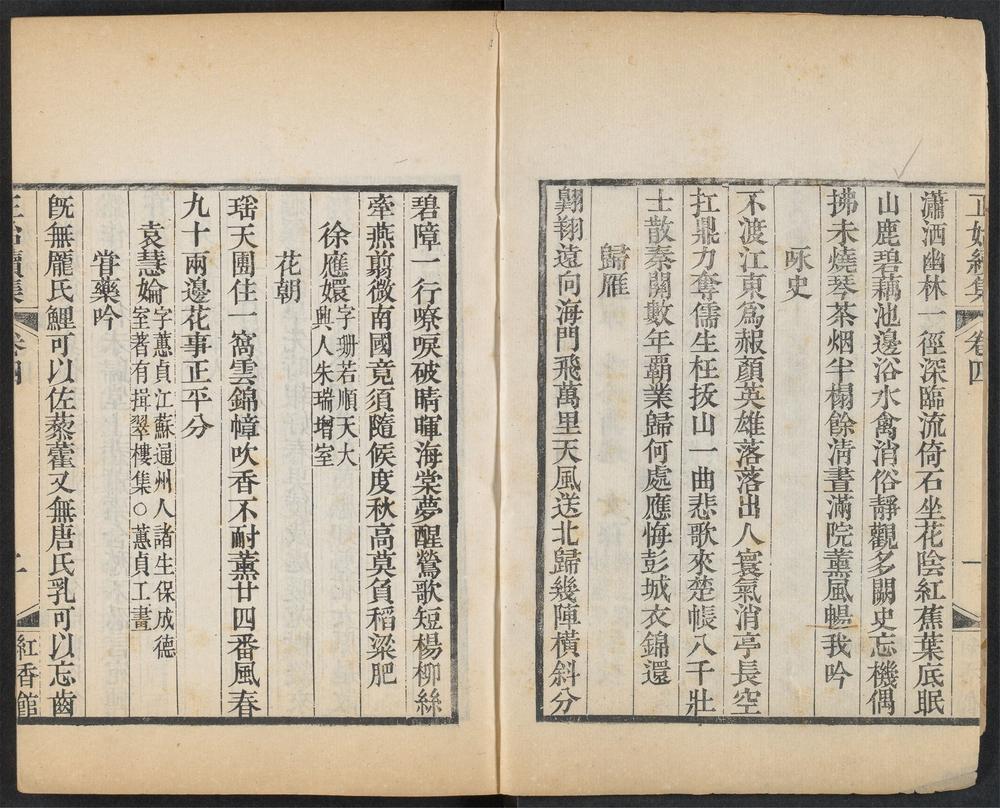 正始續集 卷四 一
瀟洒幽林一徑深臨流倚石坐花陰紅蕉葉底眠
山鹿碧藕池邊浴水禽消俗靜觀多闕史忘機偶
拂未燒琴茶烟半榻餘清晝滿院薰風暢我吟
咏史
不渡江東爲赧顏英雄落落出人寰氣消亭長空
扛鼎力奪儒生枉拔山一曲悲歌來楚帳八千壯
士散秦關數年霸業歸何處應悔彭城衣錦還
歸雁
翱翔遠向海門飛萬里天風送北歸幾陣橫斜分
碧障一行嘹唳破晴暉海棠夢醒鶯歌短楊柳絲
牽燕翦微南國竟須隨候度秋高莫負稻粱肥
徐應嬛字珊若順天大興人朱瑞增室
花朝
瑶天團住一窩雲錦幛吹香不耐薰廿四番風春
九十兩邊花事正平分
袁慧婨字蕙貞江蘇通州人諸生保成德室著有揖翠樓集○蕙貞工畫
甞藥吟
旣無龐氏鯉可以佐藜藿又無唐氏乳可以忘齒
正始續集 卷四 紅香館